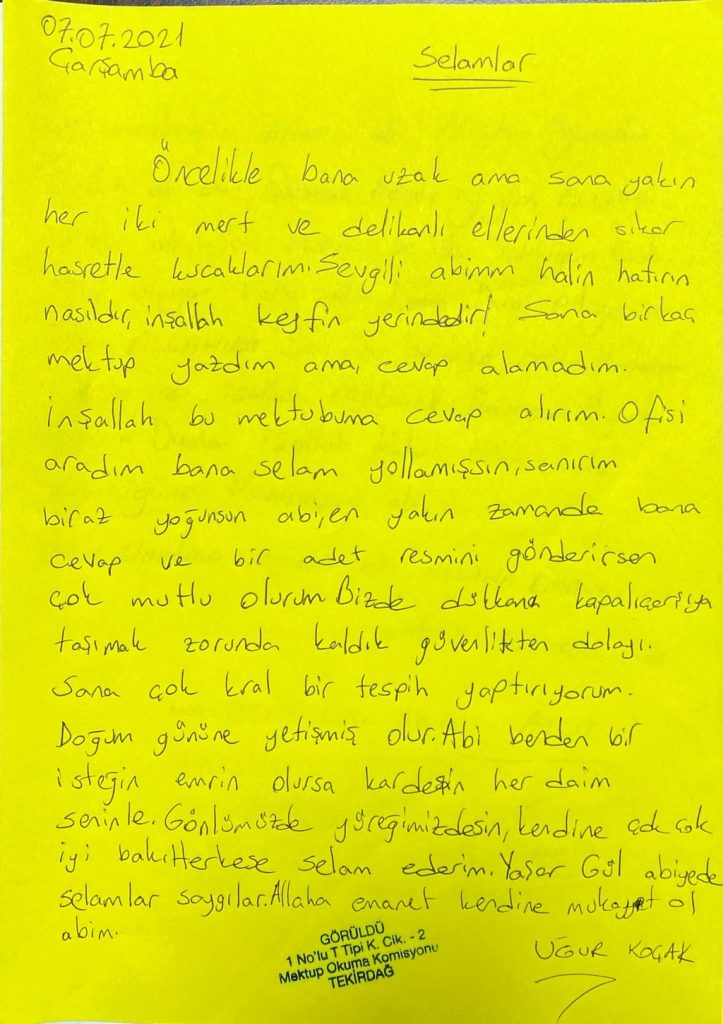 07.07.2021
Çarşamba
Selamlar
Öncelikle bana uzak ama sana yakın
her iki mert ve delikanlı ellerinden sıkar
hasretle kucaklarım. Sevgili abimm halin hatırın
nasıldır, inşallah keyfin yerindedir! Sana birkaç
mektup yazdım ama, cevap alamadım.
İnşallah bu mektubuma cevap alırım. Ofisi
aradım bana selam yollamışsın, sanırım
biraz yoğunsun abi, en yakın zamanda bana
cevap ve bir adet resmini gönderirsen
çok mutlu olurum. Bizde dükkanı kapalıçarşıya
taşımak zorunda kaldık güvenlikten dolayı.
Sana çok kral bir tespih yaptırıyorum.
Doğum gününe yetişmiş olur. Abi benden bir
isteğin emrin olursa kardeşin her daim
seninle. Gönlümüzde yüreğimizdesin, kendine çok çok
iyi bak. Herkese selam ederim. Yaşar Gül abiyede
selamlar saygılar. Allaha emanet kendine mukayyet ol
abim.
UĞUR KOÇAK
GÖRÜLDÜ
1 No'lu T Tipi K. Cik. - 2
Mektup Okuma Komisyonu
TEKİRDAĞ